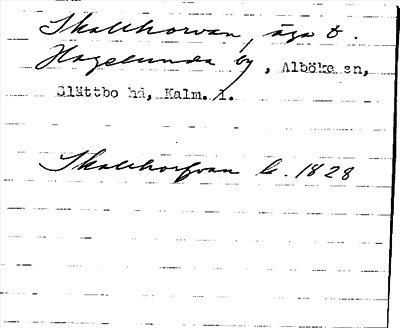 Skalkhorvan, äga t.
Hagelunda by, Alböke sn,
Slättbo hd, Kalm. l.
Skalkhorfvan k. 1828